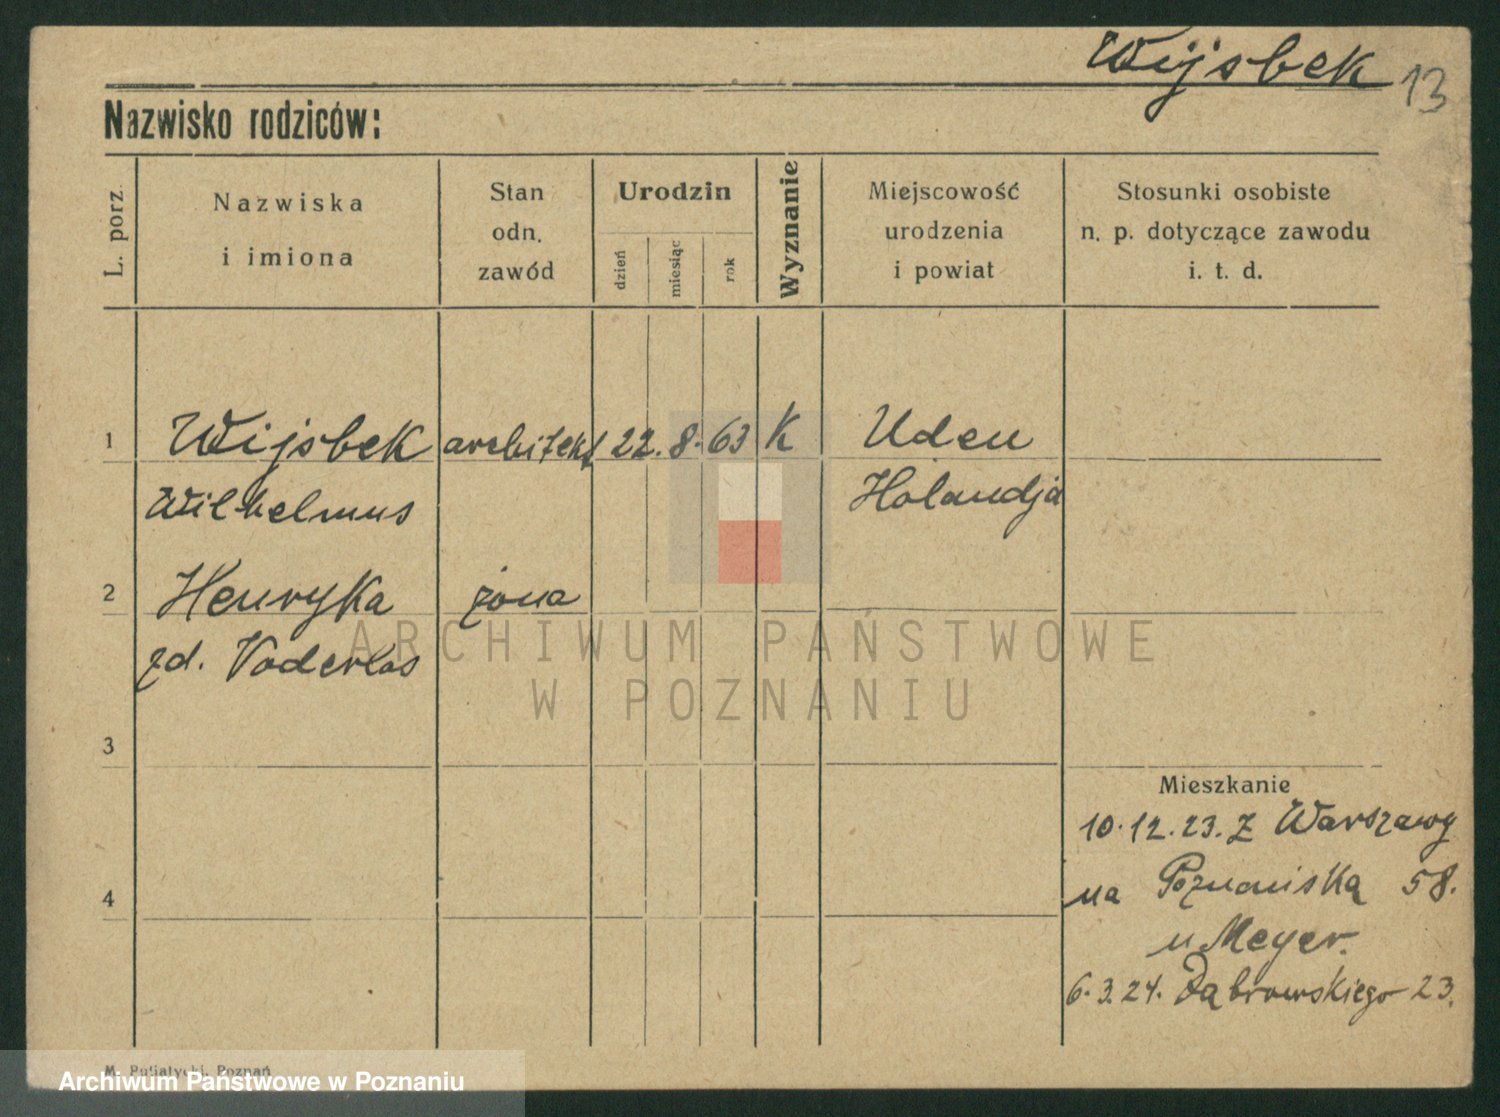 Wijsbek 13
Nazwisko rodziców:
L. porz.
Nazwiska
i imiona
Stan
odn.
zawód
Urodzin
dzień
miesiąc
rok
Wyznanie
Miejscowość
urodzenia
i powiat
Stosunki osobiste
n. p. dotyczące zawodu
i. t. d.
1 Wijsbek architekt 22. 8. 63 K Uden
Wilhelmus Holandja
2 Henryka żona
zd. Voderkas
ARCHIWUM PAŃSTWOWE
W POZNANIU
3
Mieszkanie
10.12.23. Z Warszawy
na Poznańską 58.
4
u Meyer.
6.3.24. Dąbrowskiego 23.
M. Putiatycki, Poznań
Archiwum Państwowe w Poznaniu